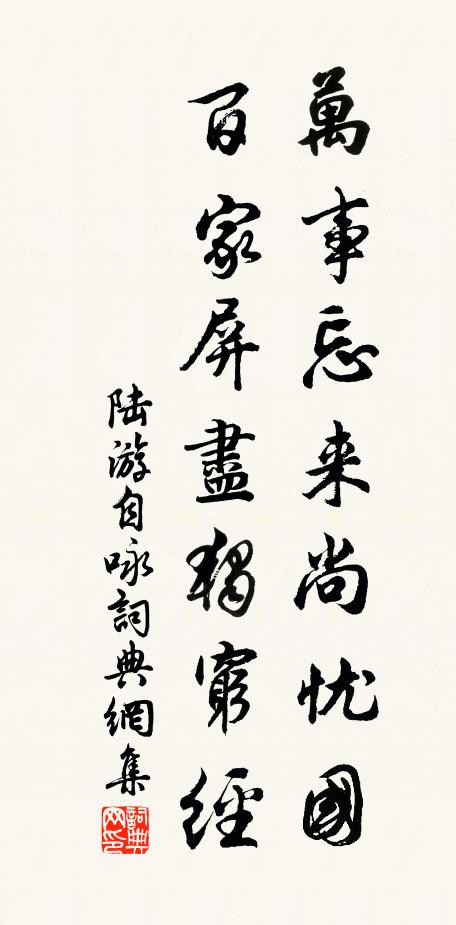 萬事忘来尚忧國
百家屏盡獨窮經
陆游自咏詞典網集
詞典网印